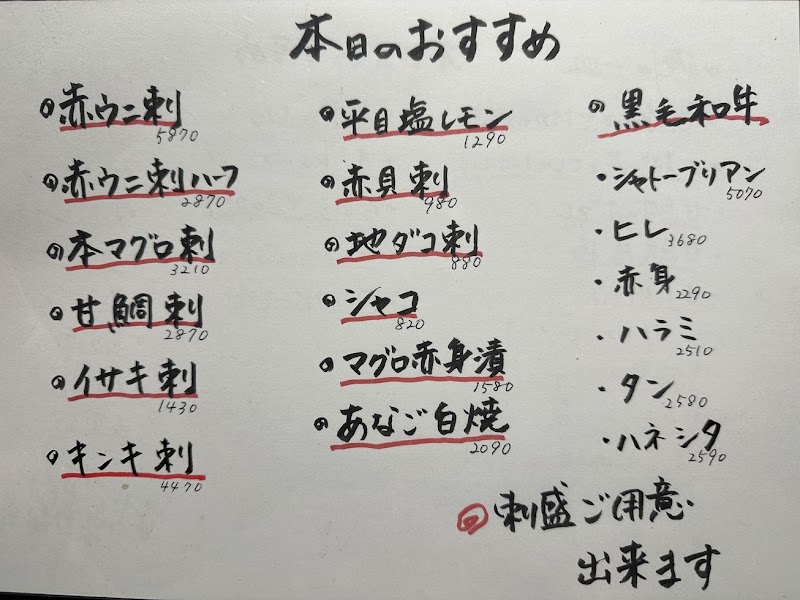 本日のおすすめ
赤ウニ刺
5870
赤ウニ刺ハーフ
2870
本マグロ刺
3210
甘鯛刺
2870
イサキ刺
1430
キンキ刺
4470
平目塩レモン
1290
赤貝刺
980
地ダコ刺
880
シャコ
820
マグロ赤身漬
1580
あなご白焼
2090
黒毛和牛
・シャトーブリアン
5070
・ヒレ
3680
・赤身
2290
・ハラミ
2510
・タン
2580
・ハネシタ
2590
刺盛ご用意
出来ます